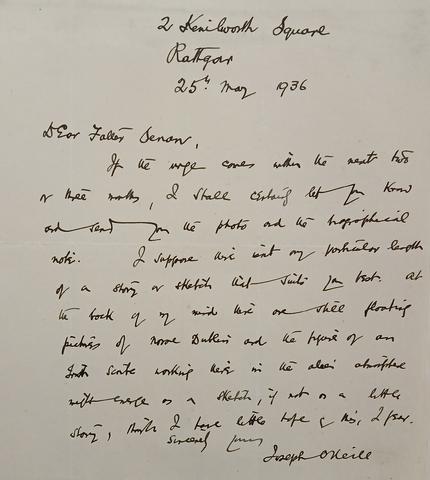 2 Kenilworth Square
Rathgar
25th May 1936
Dear Father Senan,
If the urge comes within the next two
or three months, I shall certainly let you know
and send you the photo and the biographical
note. I suppose there isn't any particular length
of a story or sketch that suits you best. At
the back of my mind there are still floating
pictures of norse Dublin and the figure of an
Irish scribe working there in the alien atmosphere
might emerge as a sketch, if not as a little
story, though I have little hope of this, I fear.
Sincerely yours
Joseph O'Neill